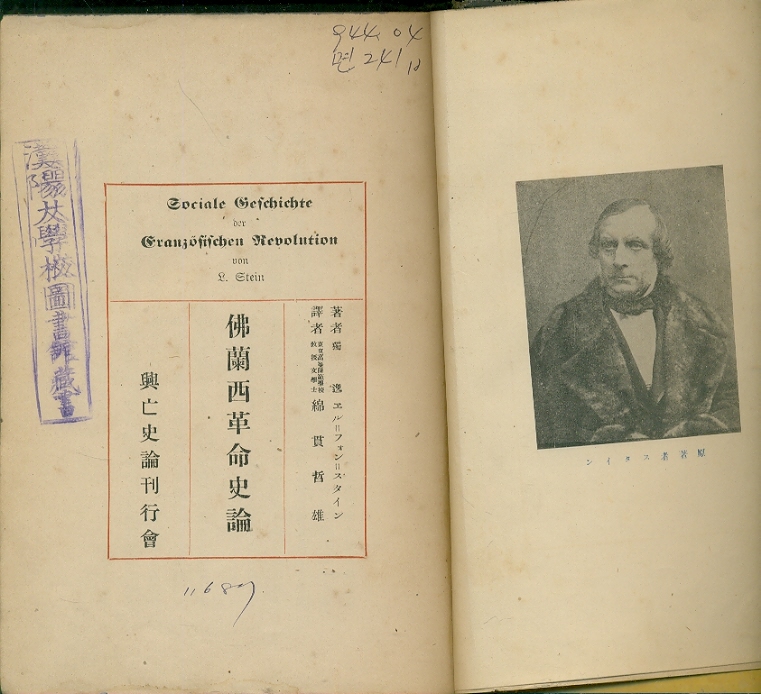 944.04
면 241
漢陽大學校圖書館藏書
Sociale Geschichte
der
Französischen Revolution
von
L. Stein
著者 獨逸 エル=フォン=スタイン
譯者 綿貫哲雄
佛蘭西革命史論
興亡史論刊行會
原著者スタイン